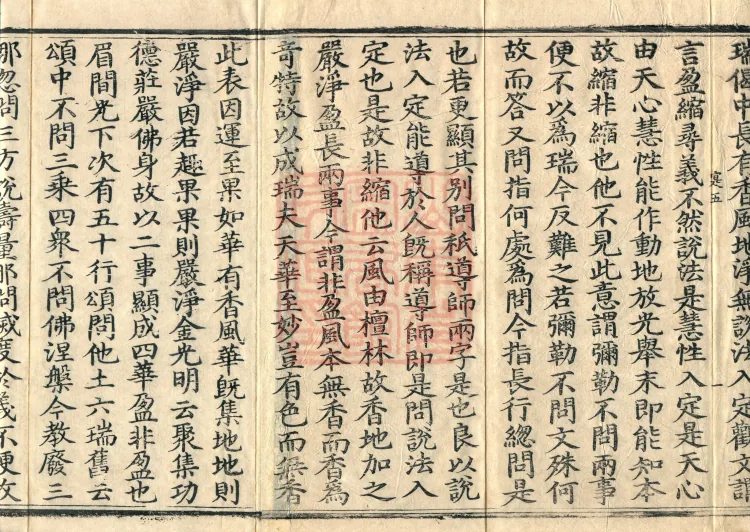 瑞偈中長有香風地淨無說法入定觀文謂
言盈縮尋義不然說法是慧性入定是天心
由天心慧性能作動地放光舉末即能知本
故縮非縮也他不見此意謂彌勒不問兩事
便不以爲瑞今反難之若彌勒不問文殊何
故而答又問指何處爲問今指長行緫問是
也若更顯其別問祇導師兩字是也良以說
法入定能導於人旣稱導師即是問說法入
定也是故非縮他云風由檀林故香地加之
嚴淨盈長兩事今謂非盈風本無香而香爲
奇特故以成瑞夫天華至妙豈有色而無香
此表因運至果如華有香風華旣集地地則
嚴淨因若趣果果則嚴淨金光明云聚集功
德莊嚴佛身故以二事顯成四華盈非盈也
眉間光下次有五十行頌問他土六瑞舊云
頌中不問三乘四衆不問佛涅槃今教廢三
那忽問三方說壽量那問滅度於義不便故